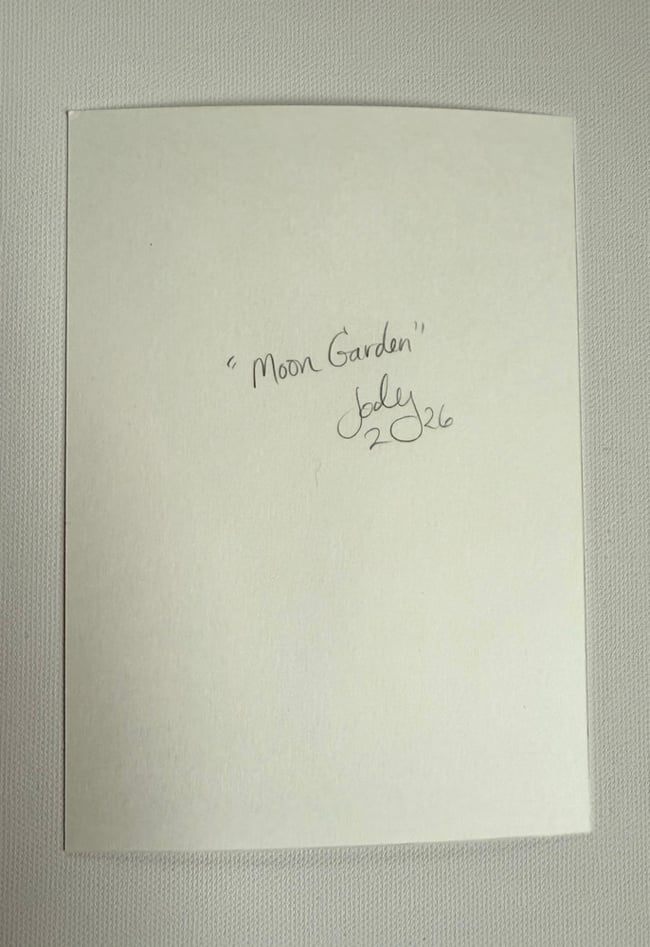 "Moon Garden"
Jody
2026